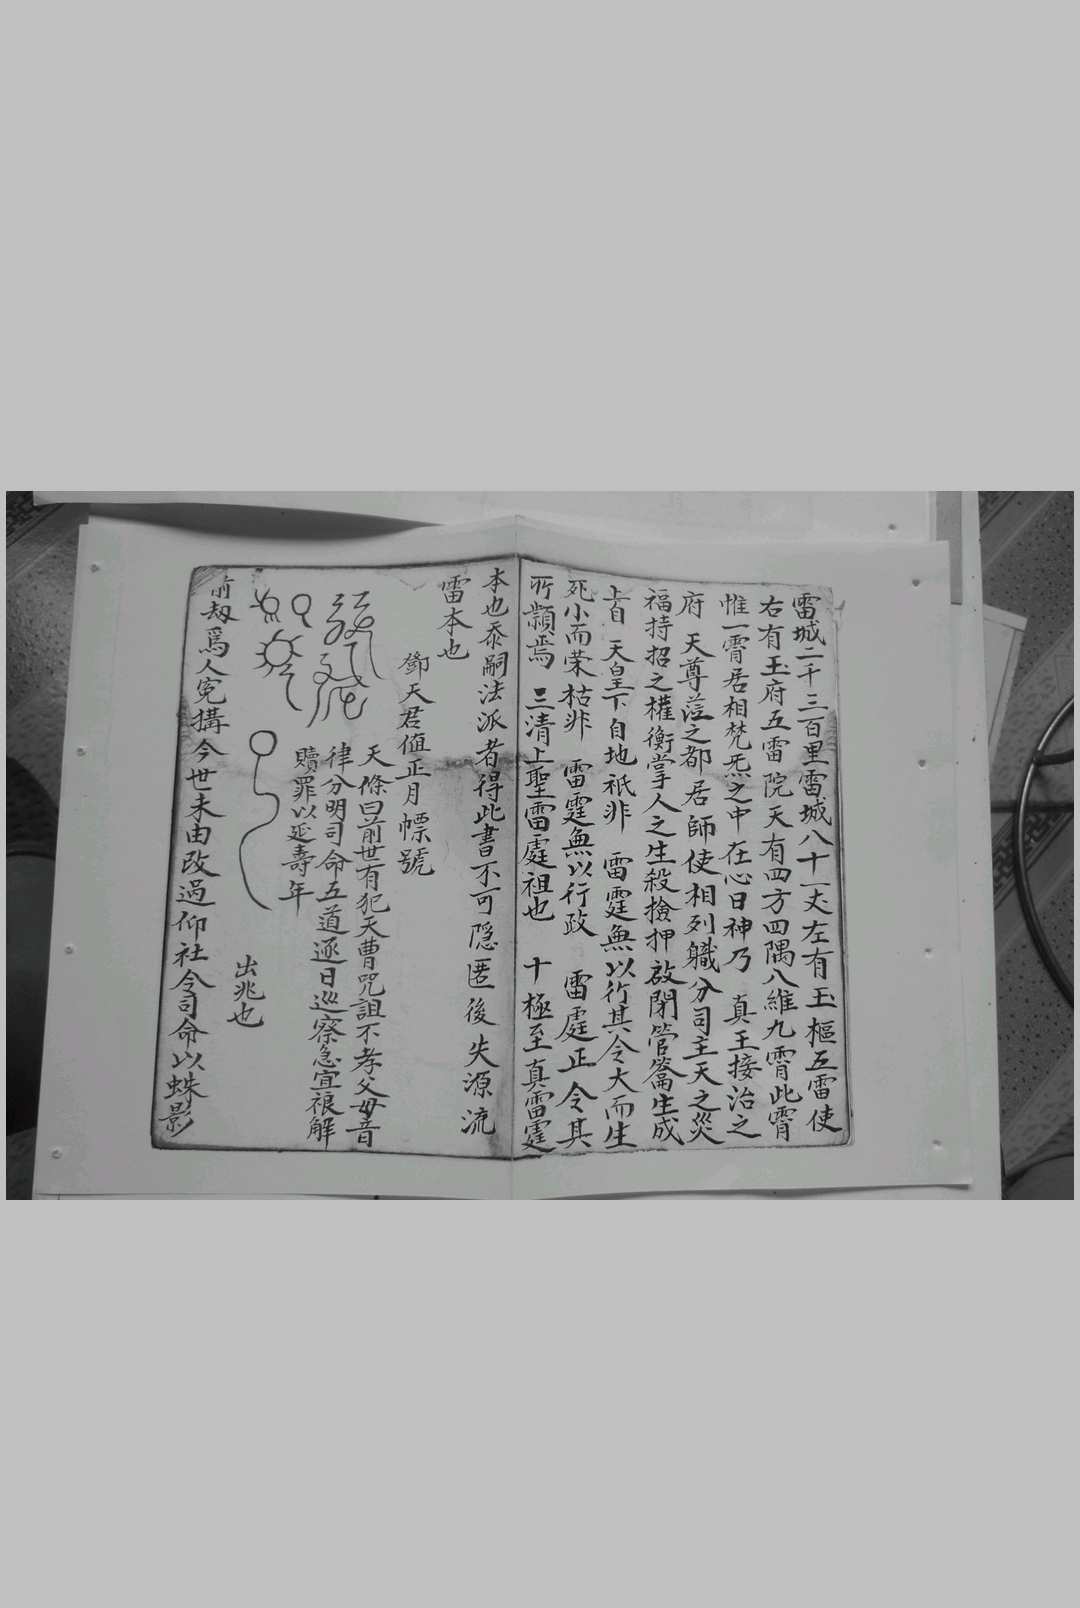 雷城二千三百里雷城八十一丈左有玉樞五雷使
右有玉府五雷院天有四方四隅八維九霄此霄
惟一霄居相梵炁之中在心曰神乃真王接治之
府天尊蒞之都居師使相列職分司主天之災
福持招之權衡掌人之生殺撿押啟閉管籥生成
上自天皇下自地祇非雷霆無以行其令大而生
死小而荣枯非雷霆無以行政雷霆正令其
所顡焉三清上聖雷霆祖也十極至真雷霆
本也忝嗣法派者得此書不可隠匿後失源流
雷本也
鄧天君值正月幖號
天條曰前世有犯天曹咒詛不孝父母音
律分明司命五道逐日巡察急宜禳解
贖罪以延壽年
出兆也
前刼爲人冤搆今世未由改過仰社令司命以蛛影